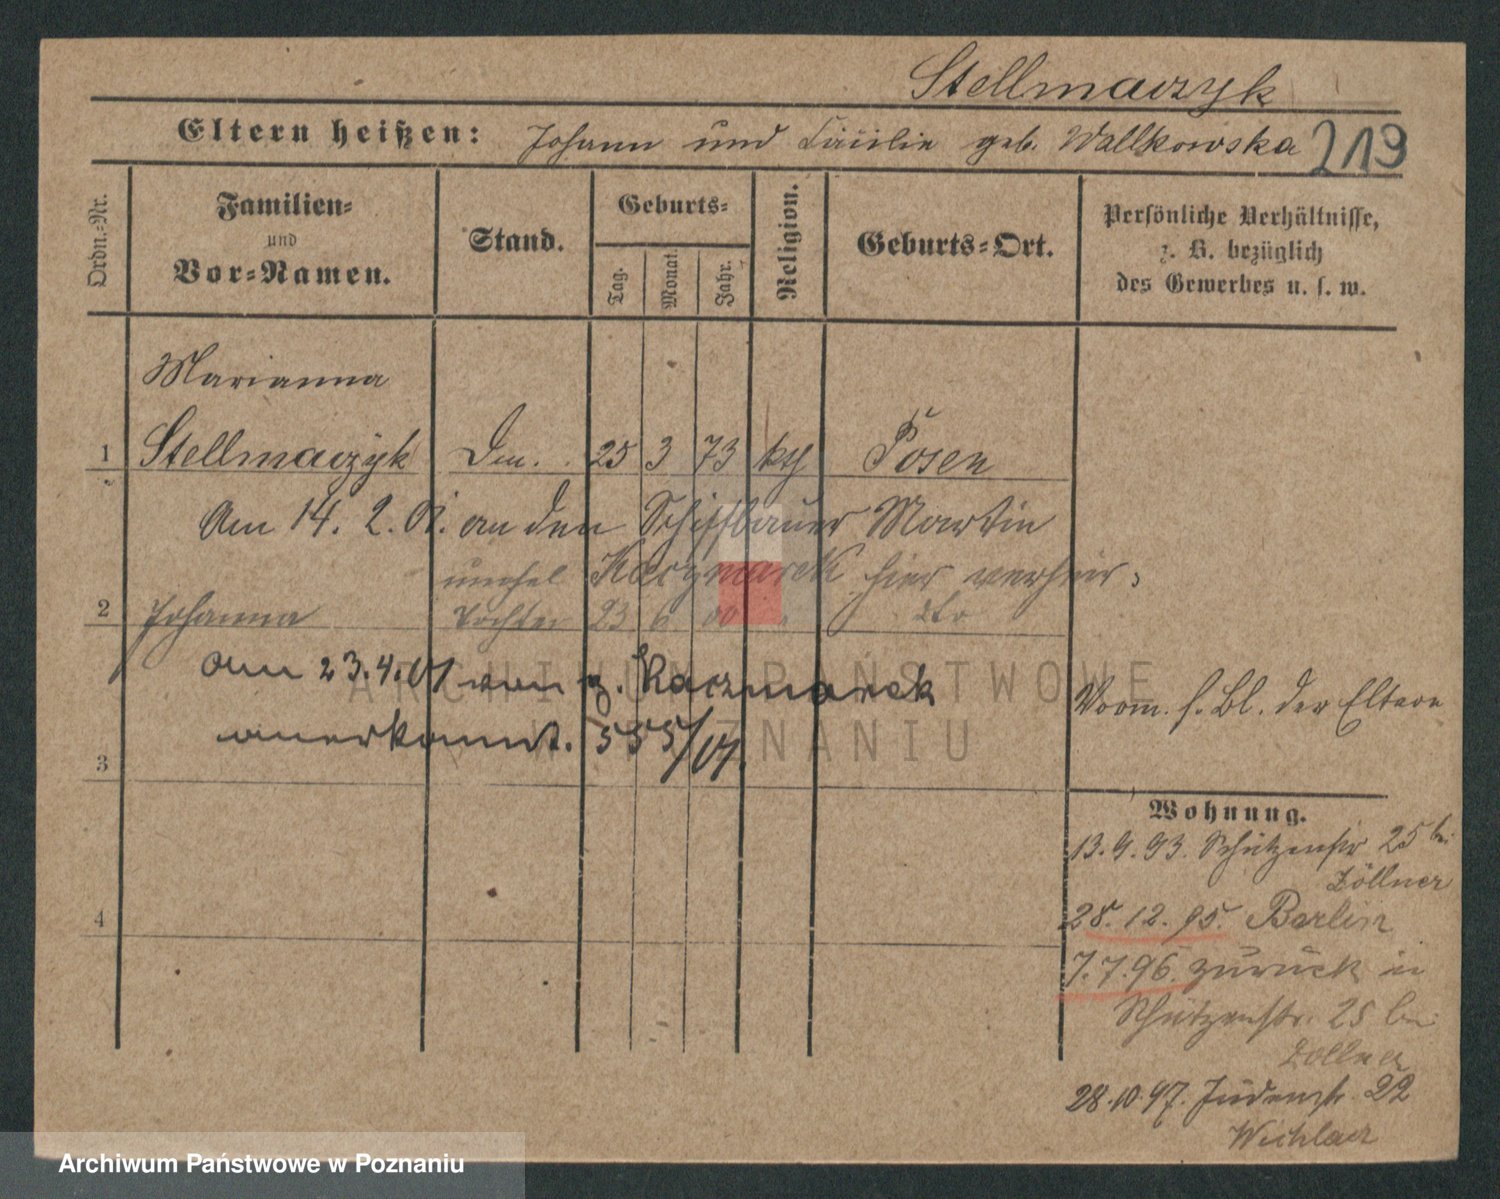 Stellmaczyk
Eltern heißen: Johann und Cäcilie geb. Wallkowska 219
Ordn.-Nr.
Familien-
und
Vor-Namen.
Stand.
Geburts-
Tag.
Monat.
Jahr.
Religion.
Geburts-Ort.
Persönliche Verhältnisse,
z. B. bezüglich
des Gewerbes u. s. w.
Marianna
1 Stellmaczyk 25 3 73 kth Posen
Am 14. 2. 01. an den Schiffbauer Martin
Kaczmarek hier verheir.
unehel
2 Johanna Tochter 23 6 00 dto
am 23.4.01 von g. Kaczmarek
anerkannt. 555/01.
3
Vorm. s. Bl. der Eltern
Wohnung.
13.9.93. Schützenstr 25 bei
Zöllner
28.12.95. Berlin
4
7.7.96. zurück in
Schützenstr. 25 bei
Zöllner
28.10.97. Judenstr. 22
ARCHIWUM PAŃSTWOWE
W POZNANIU
Archiwum Państwowe w Poznaniu